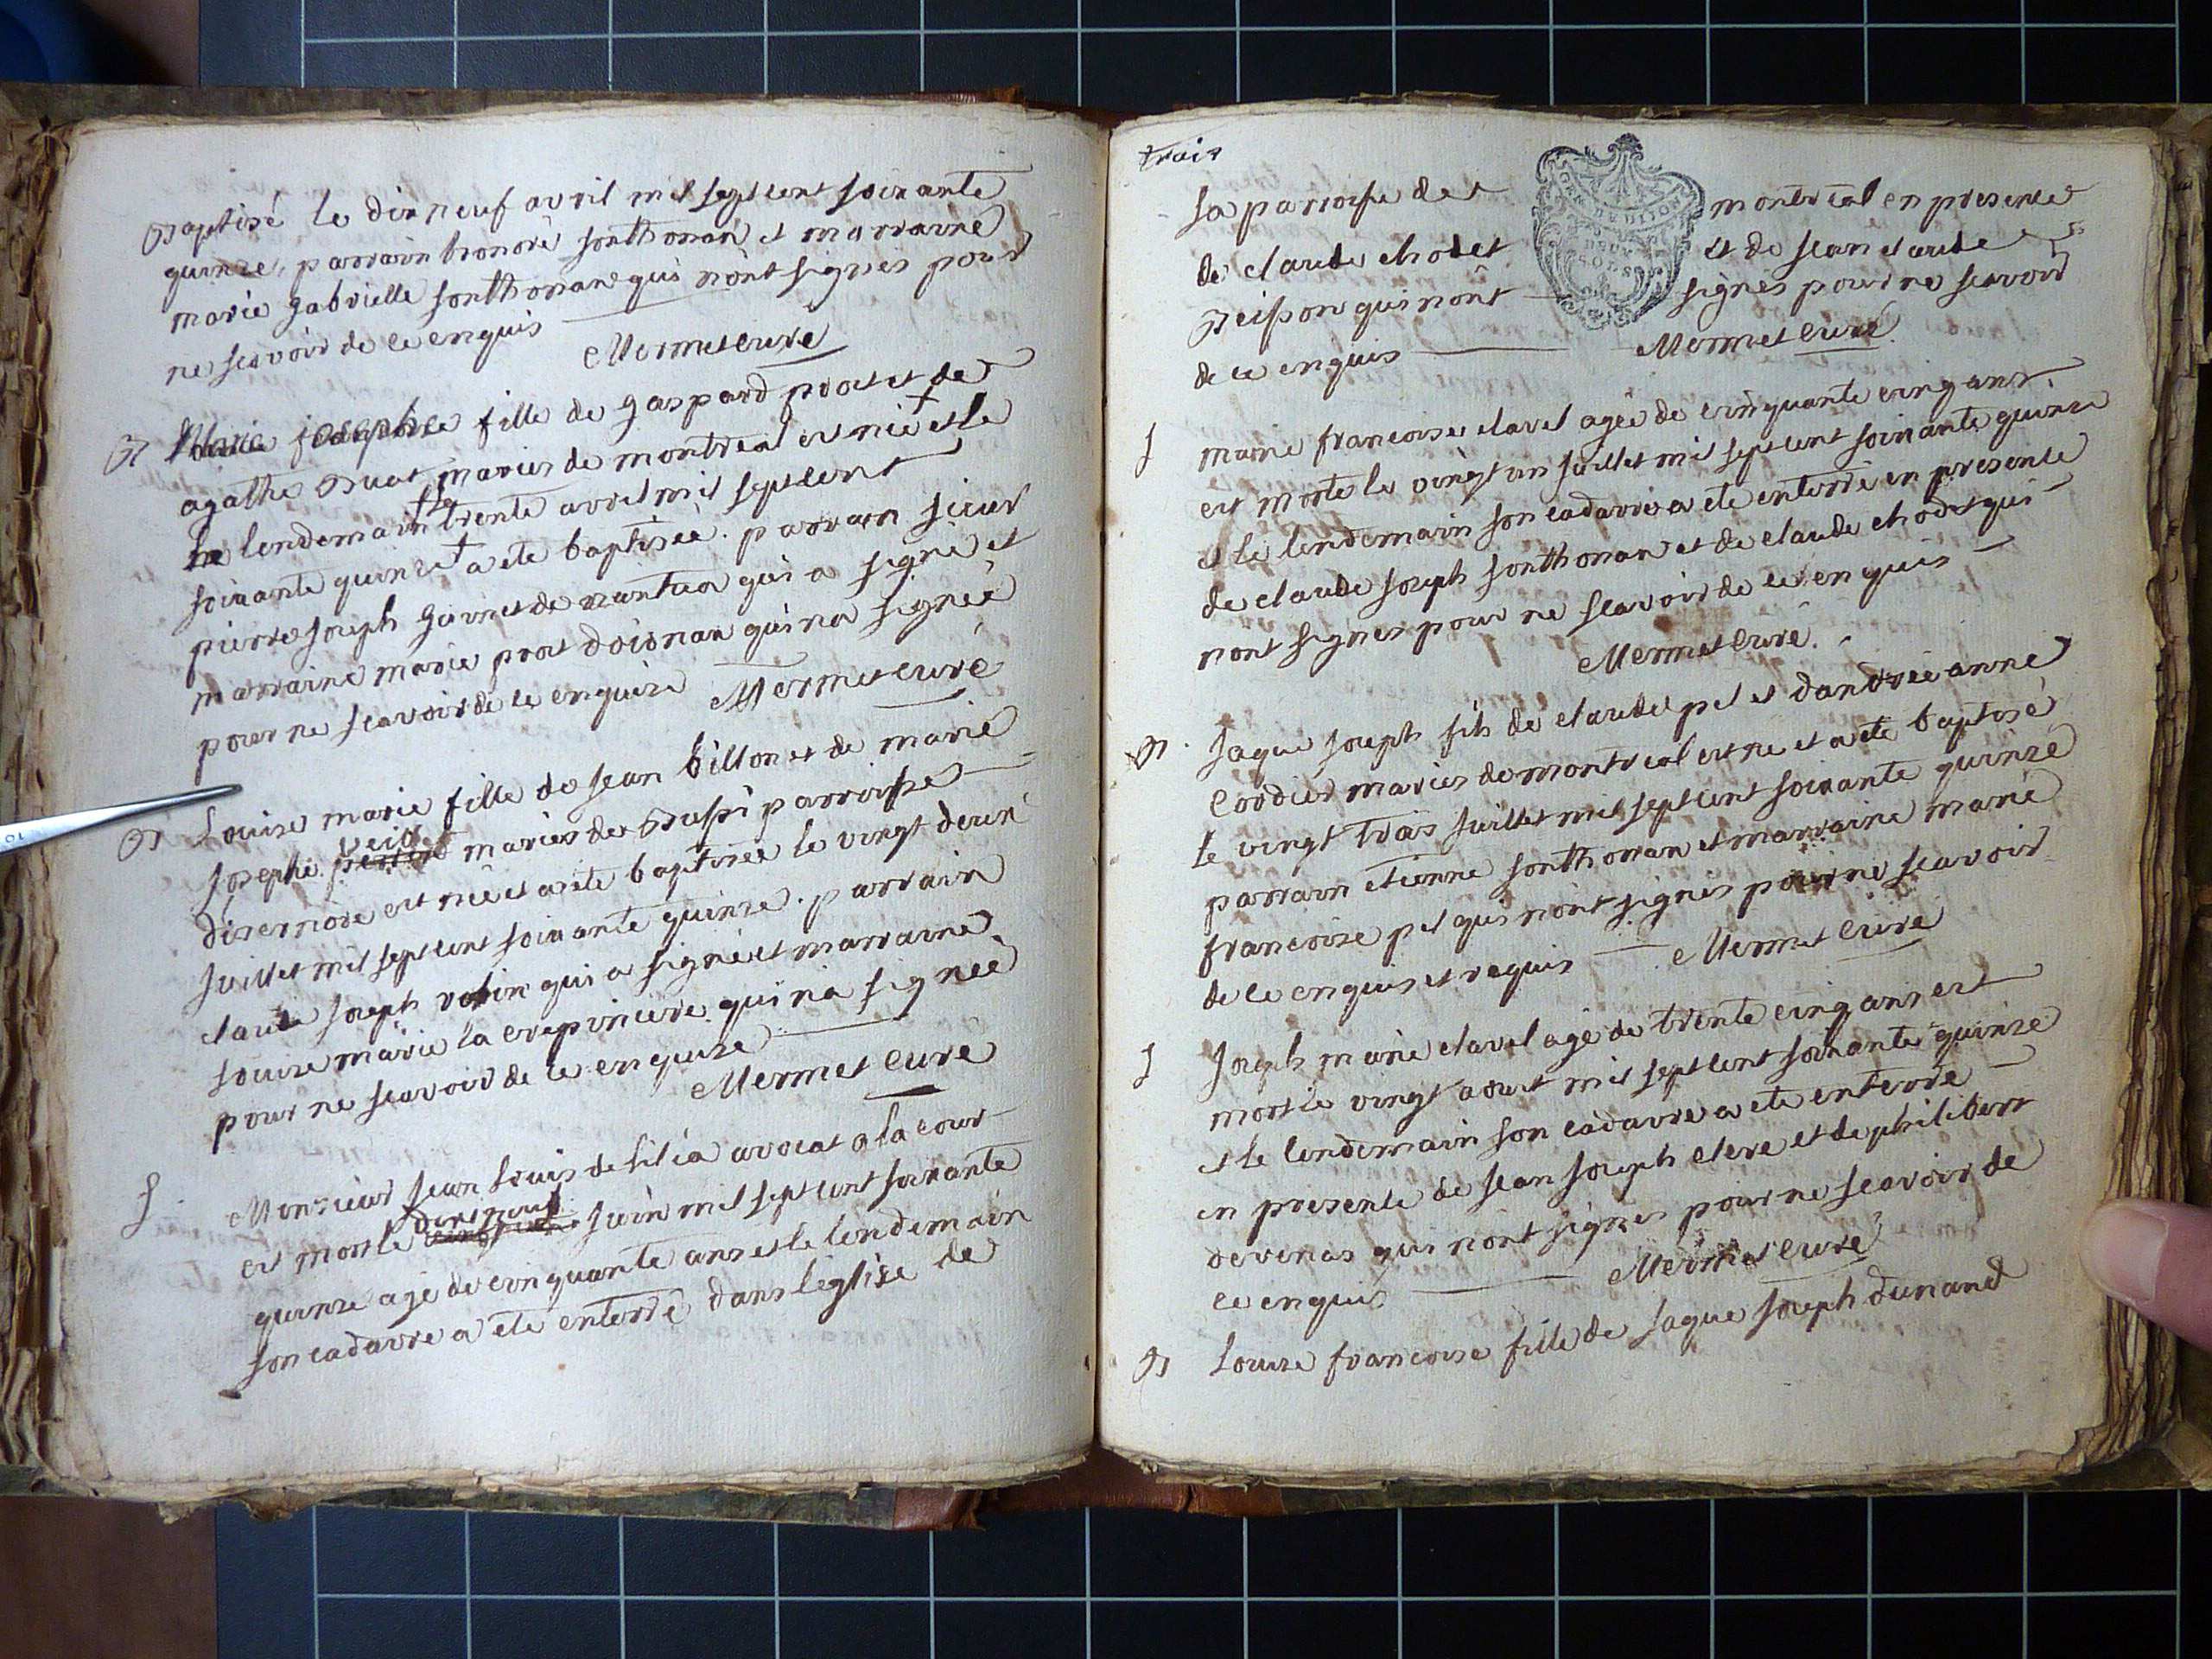 Baptisé le dix neuf avril mil sept cent soixante
quinze, parrain honoré sonthonan et marraine
marie gabrielle sonthonan qui nont signés pour
ne scavoir de ce enquis
Mermet curé
B Marie josephe fille de gaspard prost et de
agathe Buat mariés de montreal est née et le
lendemain trente avril mil sept cent
soixante quinze a ete baptisée. parrain sieur
pierre joseph de nantua qui a signé et
marraine marie prost doisnan qui na signée
pour ne scavoir de ce enquise Mermet curé
B Louise marie fille de jean billon et de marie
josephe veid mariés de parroisse
disernore est née et a ete baptisée le vingt deux
juillet mil sept cent soixante quinze. parrain
claude joseph qui a signé et marraine
louise marie la crepiniere qui na signée
pour ne scavoir de ce enquise
Mermet curé
S. Monsieur jean louis de lilia avocat a la cour
est mort le dixneuf juin mil sept cent soixante
quinze agé de cinquante ans et le lendemain
son cadavre a ete enterré dans léglise de
trois
la parroisse de montreal en presence
de claude chodet et de jean claude
qui nont signés pour ne scavoir
de ce enquis Mermet curé
GEN DE DIJON
DEUX
SOLS
S marie francoise clavel agée de cinquante cinq ans
est morte le vingt un juillet mil sept cent soixante quinze
et le lendemain son cadavre a ete enterré en presence
de claude joseph sonthonan et de claude chodet qui
nont signés pour ne scavoir de ce enquis
Mermet curé.
B. jaque joseph fils de claude pel et dandrée anne
Cordier mariés de montreal est né et a ete baptisé
le vingt trois juillet mil sept cent soixante quinze
parrain etienne sonthonan et marraine marie
francoise pel qui nont signés pour ne scavoir
de ce enquis et requis Mermet curé
S joseph marie clavel agé de trente cinq ans est
mort le vingt aout mil sept cent soixante quinze
et le lendemain son cadavre a ete enterré
en presence de jean joseph clere et de philibert
devenas qui nont signés pour ne scavoir de
ce enquis Mermet curé
B Louise francoise fille de jaque joseph dunand